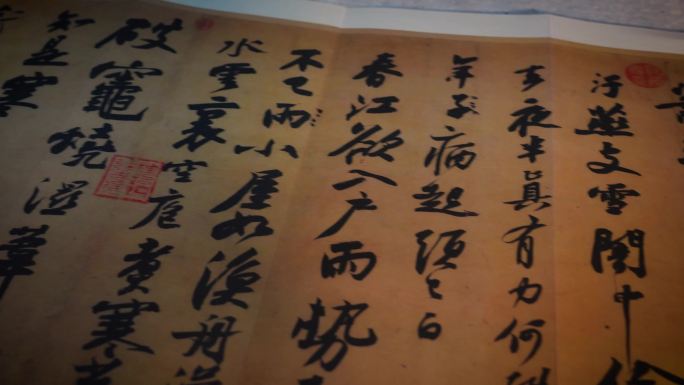 汙燕支雪闇中偷
去夜半真有力何殊
年子病起頭已白
春江欲入戶雨勢來
不已雨小屋如漁舟濛
水雲裏空庖煮寒菜
破竈燒濕葦
知是寒